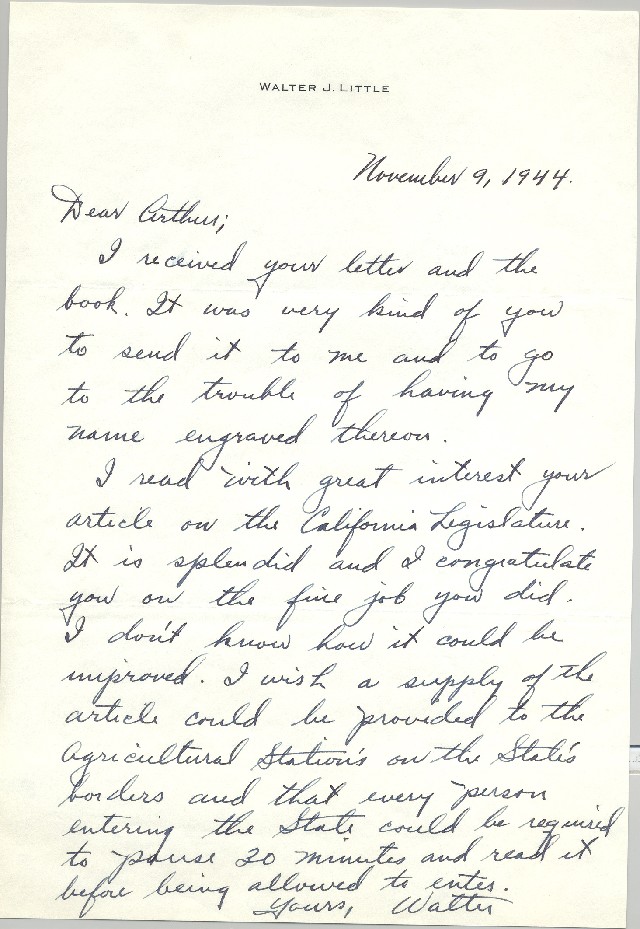 WALTER J. LITTLE
November 9, 1944.
Dear Arthur;
I received your letter and the
book. It was very kind of you
to send it to me and to go
to the trouble of having my
name engraved thereon.
I read with great interest your
article on the California Legislature.
It is splendid and I congratulate
you on the fine job you did.
I don't know how it could be
improved. I wish a supply of the
article could be provided to the
Agricultural Station's on the State's
borders and that every person
entering the State could be required
to pause 20 minutes and read it
before being allowed to enter.
Yours, Walter